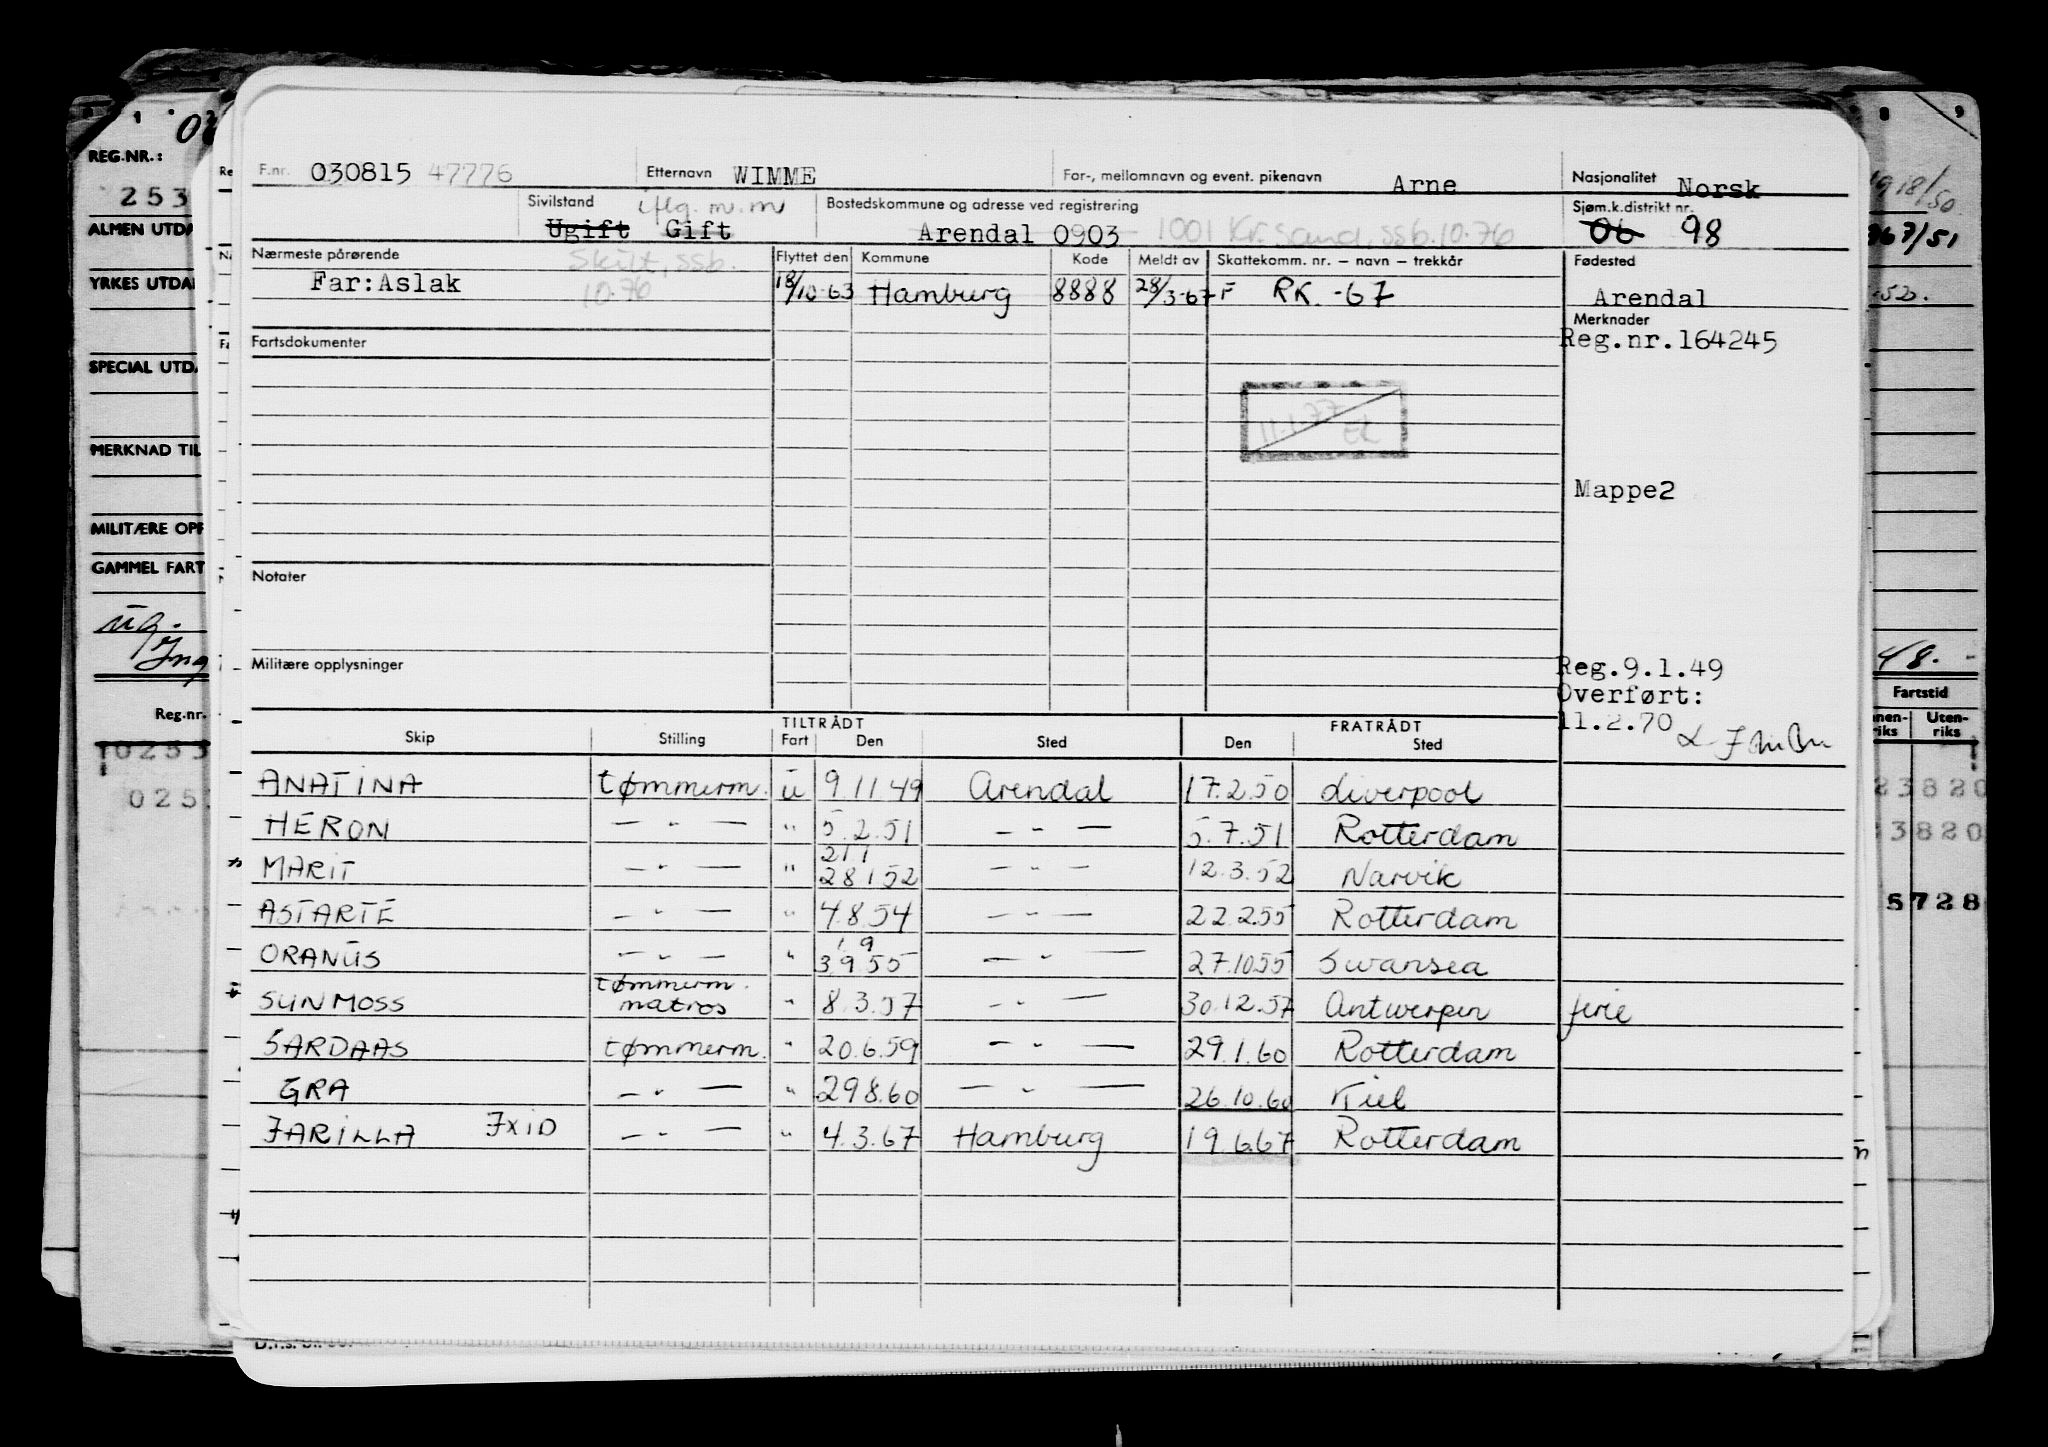 F.nr. 030815 47776 Etternavn WIMME For-, mellomnavn og event. pikenavn Arne Nasjonalitet Norsk
Sivilstand iflg. m.m Bostedskommune og adresse ved registrering Sjøm.k.distrikt nr.
Ugift Gift Arendal 0903 1001 Kr.sand, ssb. 10.76 06 98
Nærmeste pårørende Skilt, ssb. 10.76 Flyttet den Kommune Kode Meldt av Skattekomm. nr. – navn – trekkår Fødested
Far: Aslak 18/10-63 Hamburg 8888 28/3-67 F RK. -67 Arendal
Merknader
Fartsdokumenter Reg.nr.164245
11.1.77
EL
Mappe2
Notater
Militære opplysninger Reg.9.1.49
Overført:
11.2.70
TILTRÅDT FRATRÅDT
Skip Stilling Fart Den Sted Den Sted
ANATINA tømmerm. u 9.11.49 Arendal 17.2.50 Liverpool
HERON — " — " 5.2.51 — " — 5.7.51 Rotterdam
21 1
MARIT — " — " 28 1 52 — " — 12.3.52 Narvik
ASTARTE — " — " 4.8.54 — " — 22.2.55 Rotterdam
1 9
ORANUS — " — " 3 9 55 — " — 27.10.55 Swansea
tømmerm.
SUNMOSS matros " 8.3.57 — " — 30.12.57 Antwerpen ferie
SARDAAS tømmerm. " 20.6.59 — " — 29.1.60 Rotterdam
GRA — " — " 29.8.60 — " — 26.10.60 Kiel
JARILLA JXID — " — " 4.3.67 Hamburg 19.6.67 Rotterdam
REG.NR.:
253
ALMEN UTDA
YRKES UTDA
SPECIAL UTDA
MERKNAD TIL
MILITÆRE OPP
GAMMEL FART
ug.
Reg.nr.
0253
025
8 9
18/50
967/51
52.
48. -
Fartstid
nen-
riks
Uten-
riks
23820
3820
5728